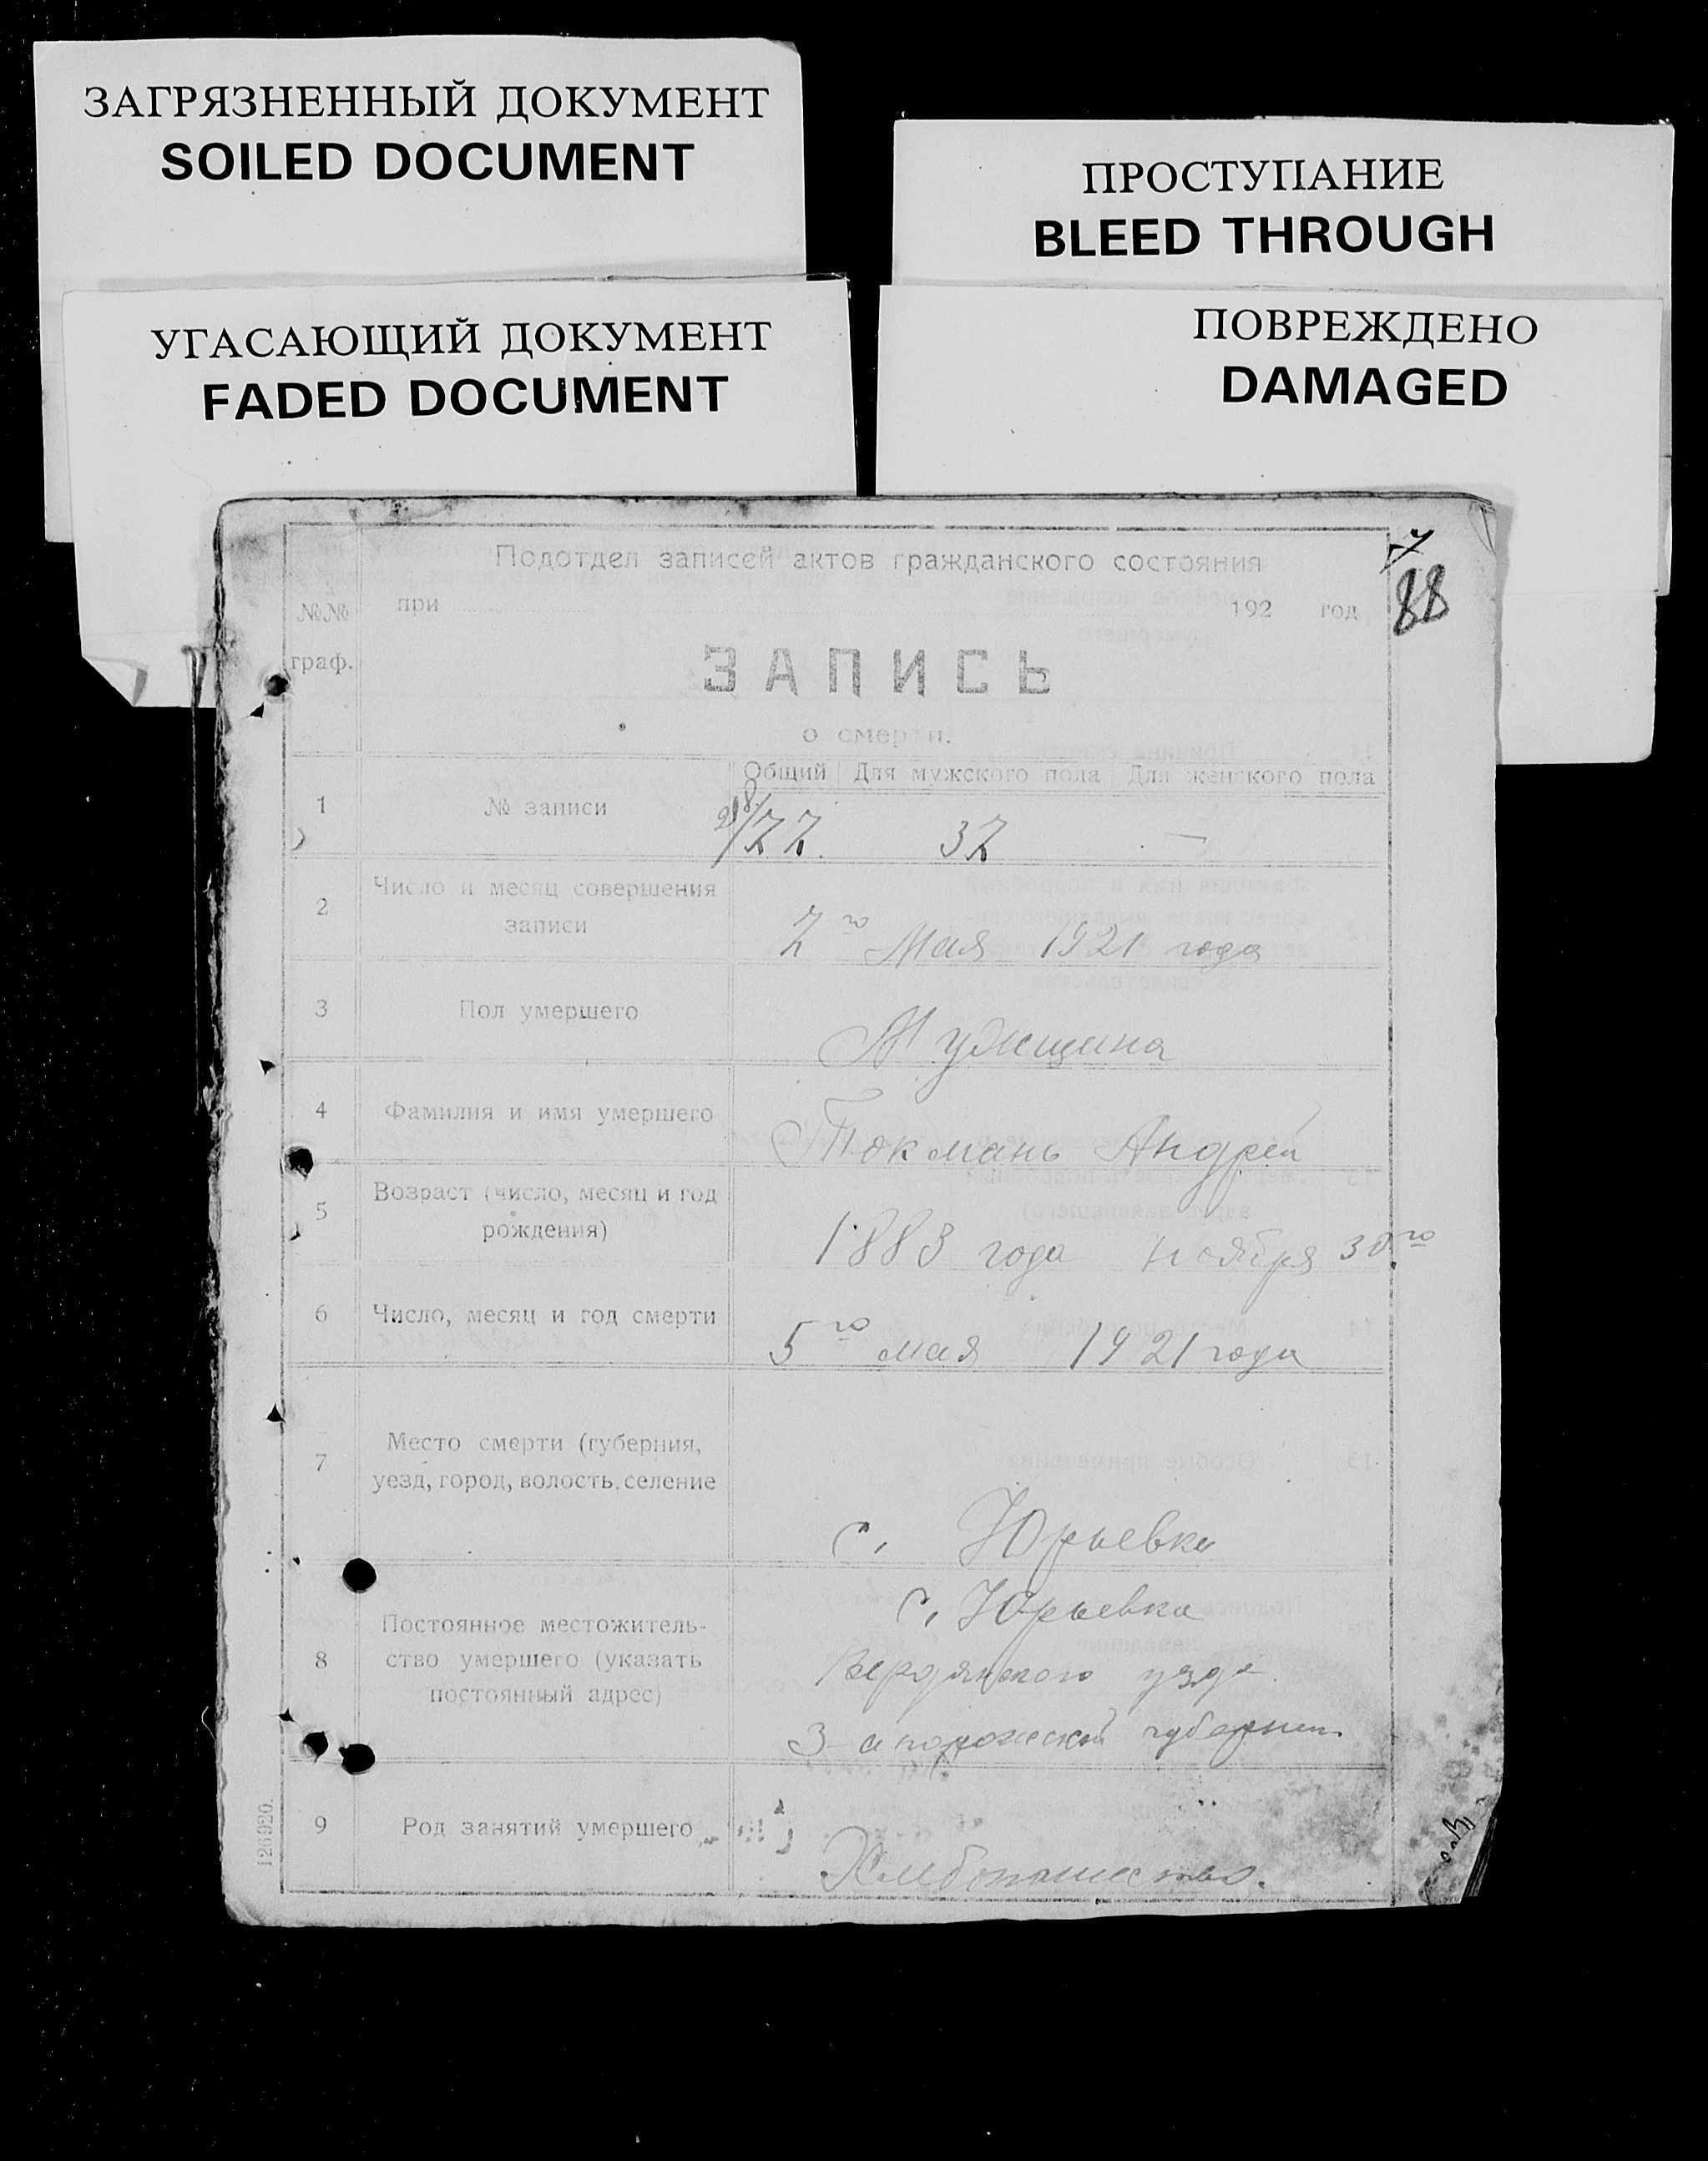 ЗАГРЯЗНЕННЫЙ ДОКУМЕНТ
SOILED DOCUMENT
ПРОСТУПАНИЕ
BLEED THROUGH
УГАСАЮЩИЙ ДОКУМЕНТ
FADED DOCUMENT
ПОВРЕЖДЕНО
DAMAGED
88
Подотдел записей актов гражданского состояния
№№ граф.
при 192 год
ЗАПИСЬ
о смерти.
Общий Для мужского пола Для женского пола
1 № записи 77. 37 —
2 Число и месяц совершения
записи
7го Мая 1921 года
3 Пол умершего
Мужщина
4 Фамилия и имя умершего
Токмань Андрей
5 Возраст (число, месяц и год
рождения)
1883 года ноября 30го
6 Число, месяц и год смерти
5го мая 1921 года
7 Место смерти (губерния,
уезд, город, волость, селение
с. Юрьевка
8 Постоянное местожитель-
ство умершего (указать
постоянный адрес)
с. Юрьевка
Бердянского
Запорожской губернии
9 Род занятий умершего
Хлебопашество.
126920.